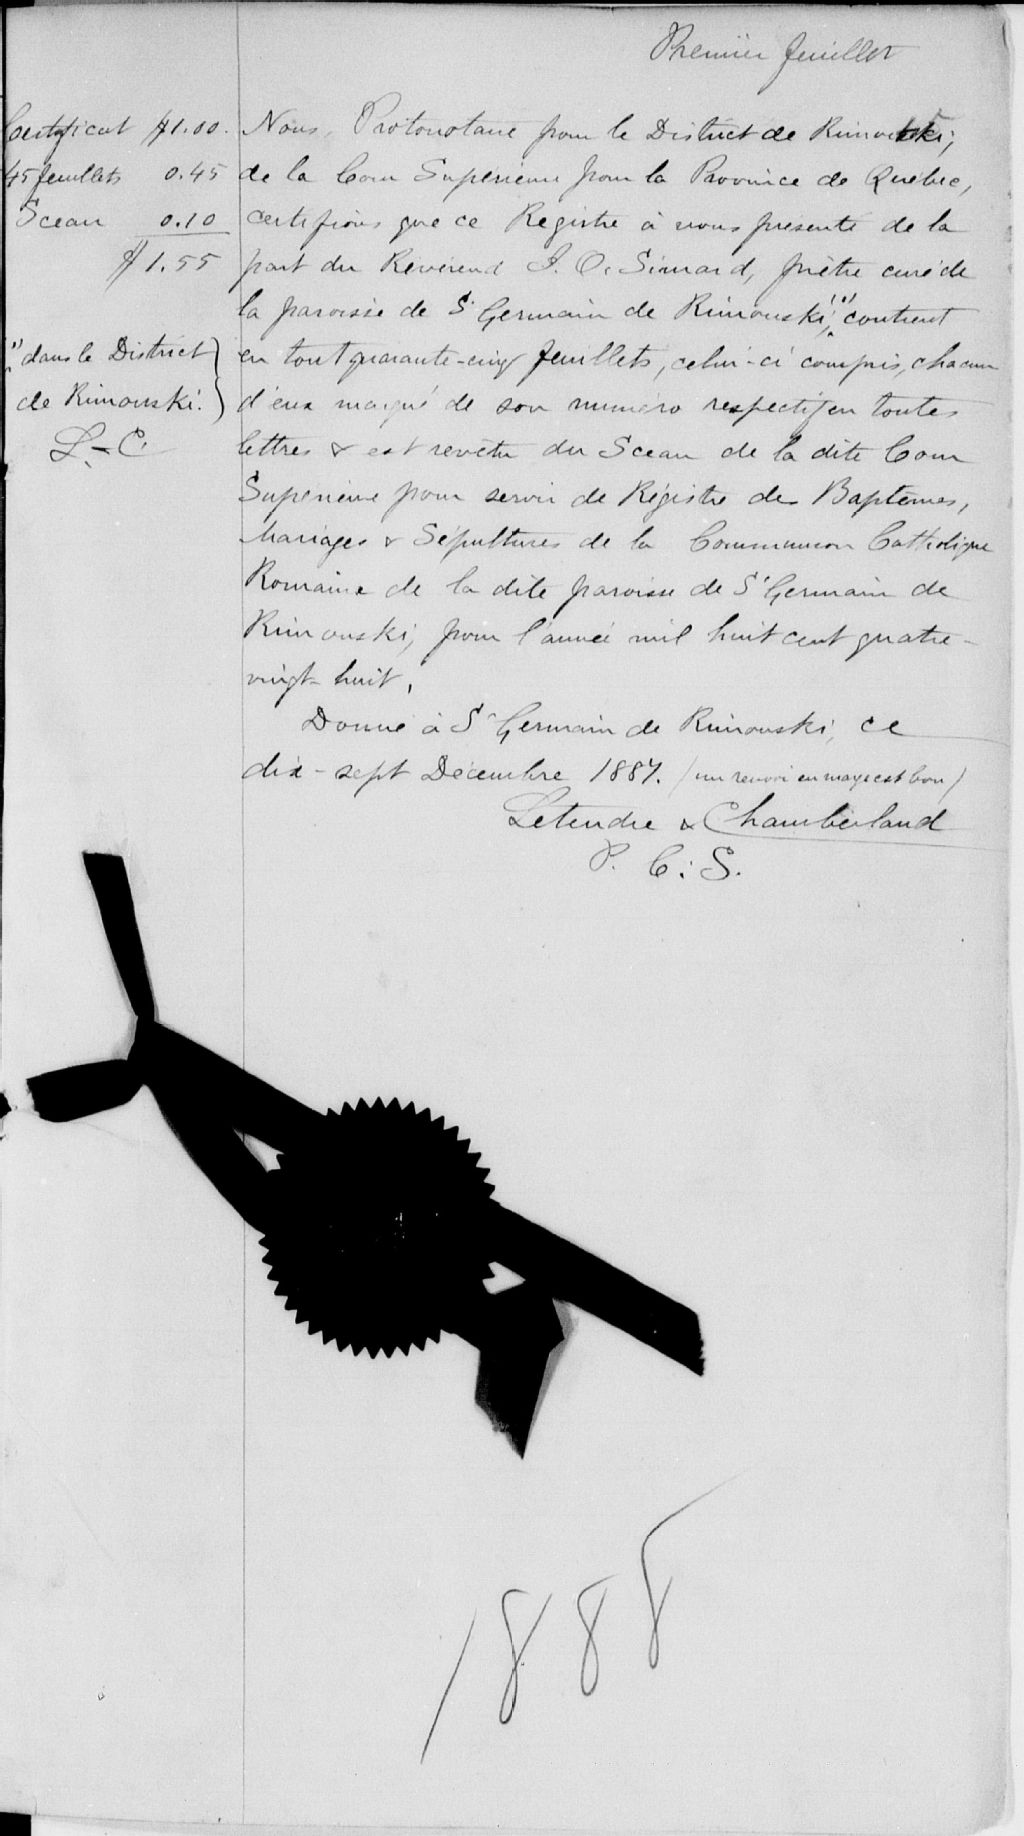 Premier feuillet
Certificat $1.00.
45 feuillets 0.45
Sceau 0.10
$1.55
"dans le District
de Rimouski.
L. & C.
Nous, Protonotaire pour le District de Rimouski,
de la Cour Supérieure pour la Province de Québec,
certifions que ce Régistre à nous présenté de la
part du Révérend J. O. Simard, prêtre curé de
la paroisse de St Germain de Rimouski," contient
en tout quarante-cinq feuillets, celui-ci compris, chacun
d'eux marqué de son numéro respectif en toutes
lettres & est revêtu du Sceau de la dite Cour
Supérieure pour servir de Régistre des Baptêmes,
Mariages & Sépultures de la Communion Catholique
Romaine de la dite paroisse de St Germain de
Rimouski, pour l'année mil huit cent quatre-
vingt-huit.
Donné à St Germain de Rimouski, ce
dix-sept Décembre 1887. (un renvoi en marge est bon)
Letendre & Chamberland
P. C. S.
1888